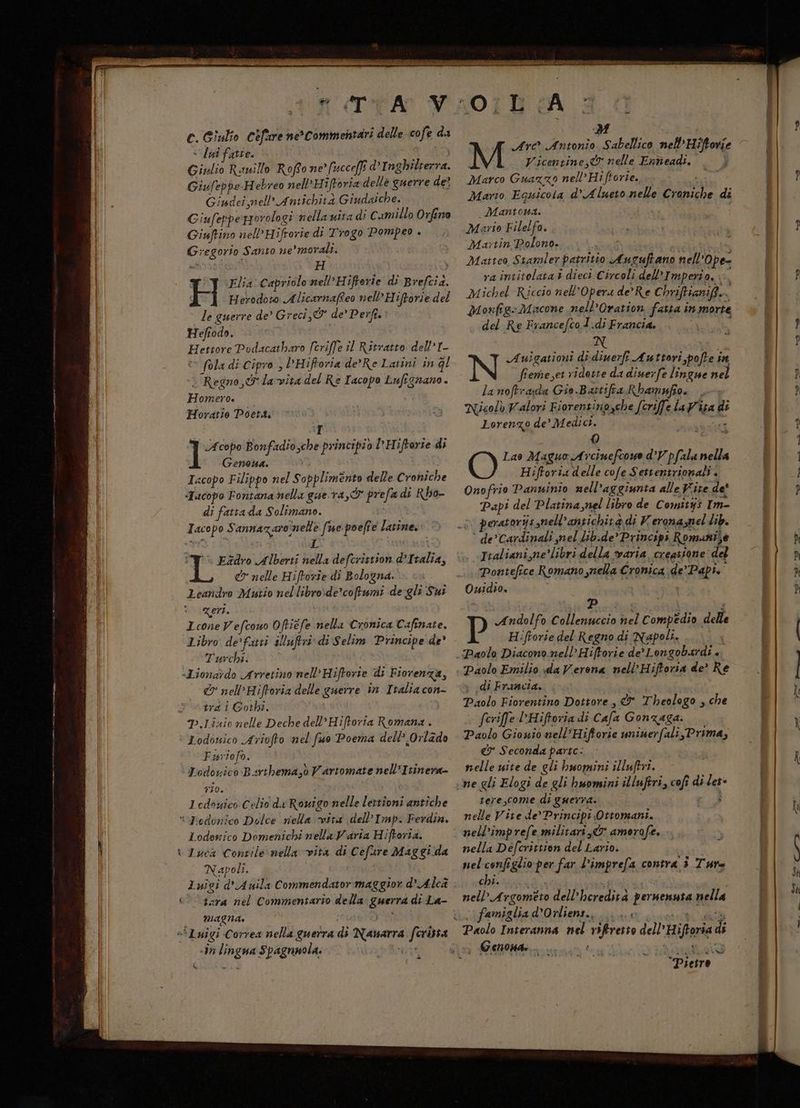 TAVOLA
C. Giulio Cesare ne'Commentari delle cose da
lui fatte.
Giulio Rauillo Rosso ne'successi d'Inghilterra.
Giuseppe Hebreo nell'Historia delle guerre de'
Giudei, nell'Antichità Giudaiche.
Giuseppe Horologi nella uita di Camillo Orsino
Giustino nell'Historie di Trogo Pompeo.
Gregorio Santo ne'morali.
H
Elia Capriolo nell'Historie di Brescia.
Herodoto Alicarnasseo nell'Historie del
le guerre de' Greci, & de' Persi.
Hesiodo.
Hettore Podacatharo scrisse il Ritratto dell'I-
sola di Cipro, l'Historia de'Re Latini in ql
Regno, & la vita del Re Iacopo Lusignano.
Homero.
Horatio Poeta.
I
Iacopo Bonfadio, che principiò l'Historie di
Genoua.
Iacopo Filippo nel Sopplimento delle Croniche
Iacopo Fontana nella guerra, & presa di Rho-
di fatta da Solimano.
Iacopo Sannazaro nelle sue poesie latine.
L
Leãdro Alberti nella descrittion d'Italia,
& nelle Historie di Bologna.
Leandro Mutio nel libro de'costumi de gli Sui
zeri.
Leone Vescouo Ostiese nella Cronica Casinate.
Libro de'fatti illustri di Selim Principe de'
Turchi.
Lionardo Arretino nell'Historie di Fiorenza,
& nell'Historia delle guerre in Italia con-
tra i Gothi.
P. Liuio nelle Deche dell'Historia Romana.
Lodouico Ariosto nel suo Poema dell'Orlãdo
Furioso.
Lodouico Barthema, ò Vartomate nell'Itinera-
rio.
Lodouico Celio da Rouigo nelle lettioni antiche
Lodouico Dolce nella vita dell'Imp. Ferdin.
Lodouico Domenichi nella Varia Historia.
Luca Contile nella vita di Cesare Maggi da
Napoli.
Luigi d'Auila Commendator maggior d'Alcã
tara nel Commentario della guerra di La-
magna.
Luigi Correa nella guerra di Nauarra scritta
in lingua Spagnuola.
M
Marc' Antonio Sabellico nell'Historie
Vicentine, & nelle Enneadi.
Marco Guazzo nell'Historie.
Mario Equicola d'Alueto nelle Croniche di
Mantoua.
Mario Filelfo.
Martin Polono.
Matteo Stamler patritio Augustano nell'Ope-
ra intitolata i dieci Circoli dell'Imperio.
Michel Riccio nell'Opera de'Re Christianiss.
Monsig. Macone nell'Oration fatta in morte
del Re Francesco I. di Francia.
N
Nauigationi di diuersi Auttori, poste in
sieme, et ridotte da diuerse lingue nel
la nostra da Gio. Battista Rhamusio.
Nicolò Valori Fiorentino, che scrisse la Vita di
Lorenzo de' Medici.
O
Olao Magno Arciuescouo d'Vpsala nella
Historia delle cose Settentrionali.
Onofrio Panuinio nell'aggiunta alle Vite de'
Papi del Platina, nel libro de Comitijs Im-
peratorijs, nell'antichità di Verona, nel lib.
de'Cardinali, nel lib. de'Principi Romani, e
Italiani, ne'libri della varia creatione del
Pontefice Romano, nella Cronica de'Papi.
Ouidio.
P
Pandolfo Collenuccio nel Compẽdio delle
Historie del Regno di Napoli.
Paolo Diacono nell'Historie de'Longobardi.
Paolo Emilio da Verona nell'Historia de' Re
di Francia.
Paolo Fiorentino Dottore, & Theologo, che
scrisse l'Historia di Casa Gonzaga.
Paolo Giouio nell'Historie uniuersali, Prima,
& Seconda parte.
nelle uite de gli huomini illustri.
ne gli Elogi de gli huomini illustri, cosi di let-
tere, come di guerra.
nelle Vite de'Principi Ottomani.
nell'imprese militari, & amorose.
nella Descrittion del Lario.
nel consiglio per far l'impresa contra i Tur-
chi.
nell'Argomẽto dell'heredità peruenuta nella
famiglia d'Orliens.
Paolo Interanna nel ristretto dell'Historia di
Genoua.
Pietro